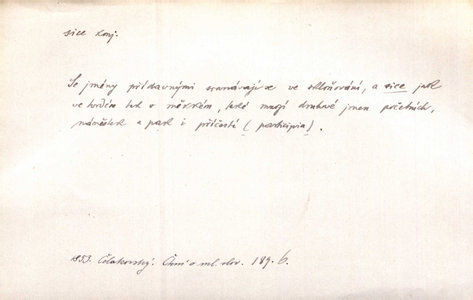 sice konj.
Se jmény přídavnými srovnávají se ve skloňování, a sice jak
ve tvrdém tak v měkkém, také mnozí druhové jmen početních,
náměstek a pak i příčestí (participia).
1853. Čelakovský. Čtení o ml. slov. 189. b.